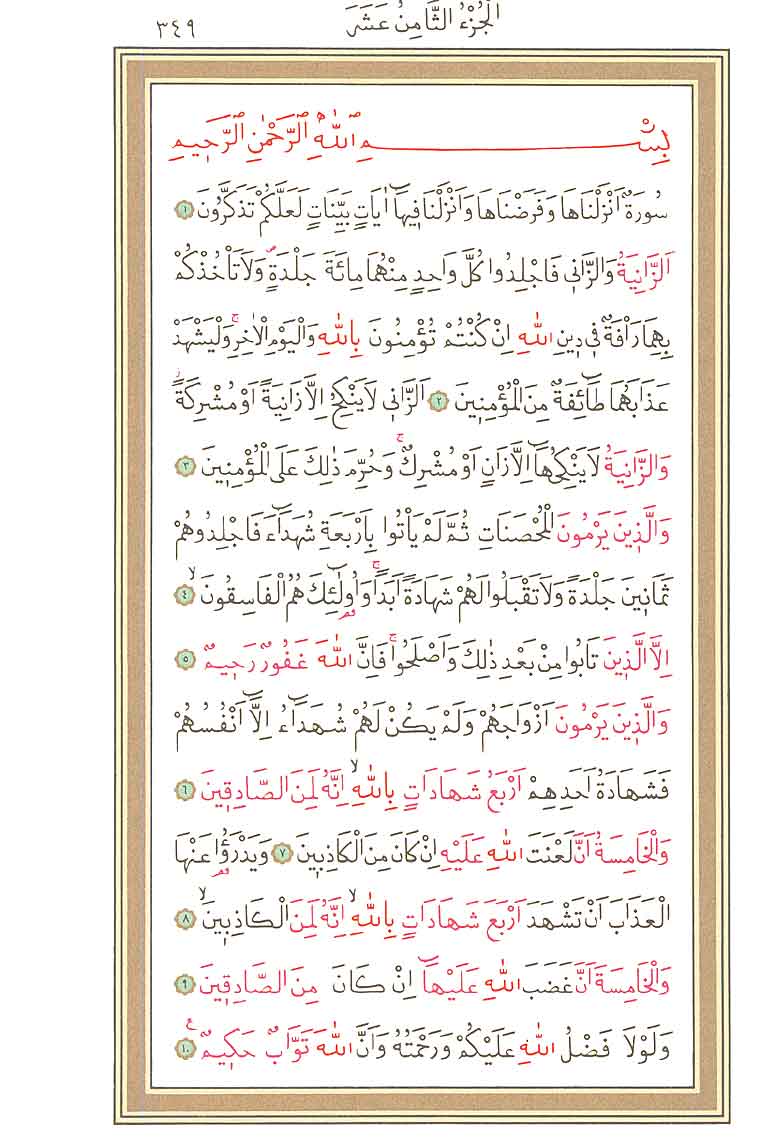 ٣٤٩ اَلْجُزْءُ الثَّامِنُ عَشَرَ
بِسْــــــــــــمِ اللّٰهِ الرَّحْمٰنِ الرَّحٖيمِ
سُورَةٌ اَنْزَلْنَاهَا وَفَرَضْنَاهَا وَاَنْزَلْنَا فٖيهَٓا اٰيَاتٍ بَيِّنَاتٍ لَعَلَّكُمْ تَذَكَّرُونَ ﴿١﴾
اَلزَّانِيَةُ وَالزَّانٖي فَاجْلِدُوا كُلَّ وَاحِدٍ مِنْهُمَا مِائَةَ جَلْدَةٍۖ وَلَا تَأْخُذْكُمْ
بِهِمَا رَاْفَةٌ فٖي دٖينِ اللّٰهِ اِنْ كُنْتُمْ تُؤْمِنُونَ بِاللّٰهِ وَالْيَوْمِ الْاٰخِرِۚ وَلْيَشْهَدْ
عَذَابَهُمَا طَٓائِفَةٌ مِنَ الْمُؤْمِنٖينَ ﴿٢﴾ اَلزَّانٖي لَا يَنْكِحُ اِلَّا زَانِيَةً اَوْ مُشْرِكَةًؗ
وَالزَّانِيَةُ لَا يَنْكِحُهَٓا اِلَّا زَانٍ اَوْ مُشْرِكٌۚ وَحُرِّمَ ذٰلِكَ عَلَى الْمُؤْمِنٖينَ ﴿٣﴾
وَالَّذٖينَ يَرْمُونَ الْمُحْصَنَاتِ ثُمَّ لَمْ يَأْتُوا بِاَرْبَعَةِ شُهَدَٓاءَ فَاجْلِدُوهُمْ
ثَمَانٖينَ جَلْدَةً وَلَا تَقْبَلُوا لَهُمْ شَهَادَةً اَبَداًۚ وَاُو۬لٰٓئِكَ هُمُ الْفَاسِقُونَۙ ﴿٤﴾
اِلَّا الَّذٖينَ تَابُوا مِنْ بَعْدِ ذٰلِكَ وَاَصْلَحُواۚ فَاِنَّ اللّٰهَ غَفُورٌ رَحٖيمٌ ﴿٥﴾
وَالَّذٖينَ يَرْمُونَ اَزْوَاجَهُمْ وَلَمْ يَكُنْ لَهُمْ شُهَدَٓاءُ اِلَّٓا اَنْفُسُهُمْ
فَشَهَادَةُ اَحَدِهِمْ اَرْبَعُ شَهَادَاتٍ بِاللّٰهِۙ اِنَّهُ لَمِنَ الصَّادِقٖينَ ﴿٦﴾
وَالْخَامِسَةُ اَنَّ لَعْنَتَ اللّٰهِ عَلَيْهِ اِنْ كَانَ مِنَ الْكَاذِبٖينَ ﴿٧﴾ وَيَدْرَؤُ۬ا عَنْهَا
الْعَذَابَ اَنْ تَشْهَدَ اَرْبَعَ شَهَادَاتٍ بِاللّٰهِۙ اِنَّهُ لَمِنَ الْكَاذِبٖينَۙ ﴿٨﴾
وَالْخَامِسَةَ اَنَّ غَضَبَ اللّٰهِ عَلَيْهَٓا اِنْ كَانَ مِنَ الصَّادِقٖينَ ﴿٩﴾
وَلَوْلَا فَضْلُ اللّٰهِ عَلَيْكُمْ وَرَحْمَتُهُ وَاَنَّ اللّٰهَ تَوَّابٌ حَكٖيمٌࣖ ﴿١٠﴾